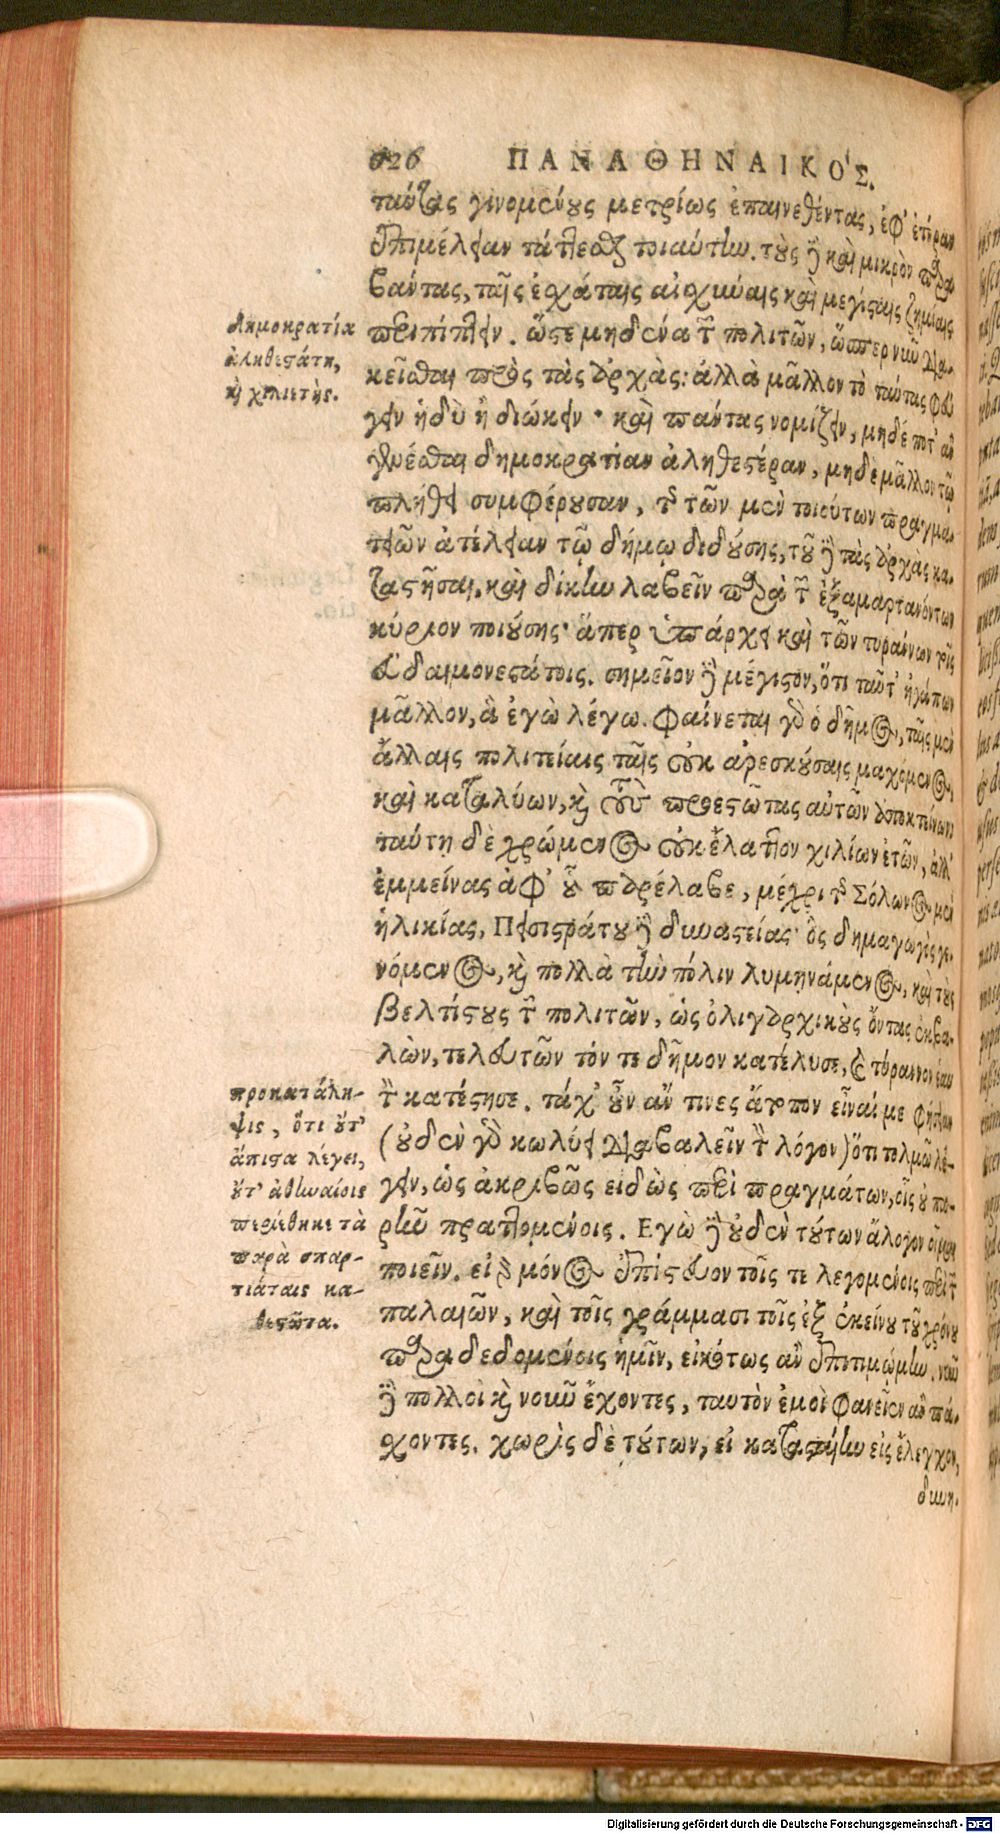 626 ΠΑΝΑΘΗΝΑΙΚΟ'Σ.
ταύτας γινομένους μετρίως ἐπαινεθέντας, ἐφ' ἑτέραν
ἐπιμέλειαν τάττεσθαι τοιαύτην. τοὺς δὲ καὶ μικρὸν παρα
βάντας, ταῖς ἐσχάταις αἰσχύναις καὶ μεγίσταις ζημίαις
περιπίπτειν. ὥστε μηδένα τῶν πολιτῶν, ὥσπερ νῦν δια-
κεῖσθαι πρὸς τὰς ἀρχὰς: ἀλλὰ μᾶλλον τὸ ταύτας φεύ
γειν ἡδὺ ἢ διώκειν · καὶ πάντας νομίζειν, μηδέ ποτ' ἂν
γενέσθαι δημοκρατίαν ἀληθεστέραν, μηδὲ μᾶλλον τῷ
πλήθει συμφέρουσαν, τῆς τῶν μὲν τοιούτων πραγμα-
τειῶν ἀτέλειαν τῷ δήμῳ διδούσης, τοῦ δὲ τὰς ἀρχὰς κα-
ταστῆσαι, καὶ δίκην λαβεῖν παρὰ τῶν ἐξαμαρτανόντων
κύριον ποιούσης· ἅπερ ὑπάρχει καὶ τῶν τυράννων τοῖς
εὐδαιμονεστάτοις. σημεῖον δὲ μέγιστον, ὅτι ταῦτ' ἠγάπων
μᾶλλον, ἃ ἐγὼ λέγω. φαίνεται γὰρ ὁ δῆμος, ταῖς μὲν
ἄλλαις πολιτείαις ταῖς οὐκ ἀρεσκούσαις μαχόμενος,
καὶ καταλύων, καὶ τοὺς προεστῶτας αὐτῶν ἀποκτείνων:
ταύτῃ δὲ χρώμενος οὐκ ἔλαττον χιλίων ἐτῶν, ἀλλ'
ἐμμείνας ἀφ' οὗ παρέλαβε, μέχρι τῆς Σόλωνος μὲν
ἡλικίας, Πεισιστράτου δὲ δυναστείας· ὃς δημαγωγὸς γε-
νόμενος, καὶ πολλὰ τὴν πόλιν λυμηνάμενος, καὶ τοὺς
βελτίστους τῶν πολιτῶν, ὡς ὀλιγαρχικοὺς ὄντας ἐκβα-
λὼν, τελευτῶν τόν τε δῆμον κατέλυσε, καὶ τύραννον ἑαυ
τὸν κατέστησε. τάχ' οὖν ἄν τινες ἄτοπον εἶναί με φήσειαν
(οὐδὲν γὰρ κωλύει διαβαλεῖν τὸν λόγον) ὅτι τολμῶ λέ-
γειν, ὡς ἀκριβῶς εἰδὼς περὶ πραγμάτων, οἷς οὐ πα-
ρῆν πραττομένοις. Ἐγὼ δὲ οὐδὲν τούτων ἄλογον οἶμαι
ποιεῖν. εἰ μὲν γὰρ μόνος ἐπίστευον τοῖς τε λεγομένοις περὶ τῶν
παλαιῶν, καὶ τοῖς γράμμασι τοῖς ἐξ ἐκείνου τοῦ χρόνου
παραδεδομένοις ἡμῖν, εἰκότως ἂν ἐπιτιμῴμην. νῦν
δὲ πολλοὶ καὶ νοῦν ἔχοντες, ταυτὸν ἐμοὶ φανεῖεν ἂν πά-
σχοντες. χωρὶς δὲ τούτων, εἰ κατασταίην εἰς ἔλεγχον,
δυνη-
δημοκρατία
ἀληθεστάτη,
καὶ χιλιετὴς.
προκατάλη-
ψις, ὅτι οὔτ'
ἄπιστα λέγει,
οὔτ' ἀθηναίοις
περιέθηκε τὰ
παρὰ σπαρ-
τιάταις κα-
θεστῶτα.
Digitalisierung gefördert durch die Deutsche Forschungsgemeinschaft - DFG